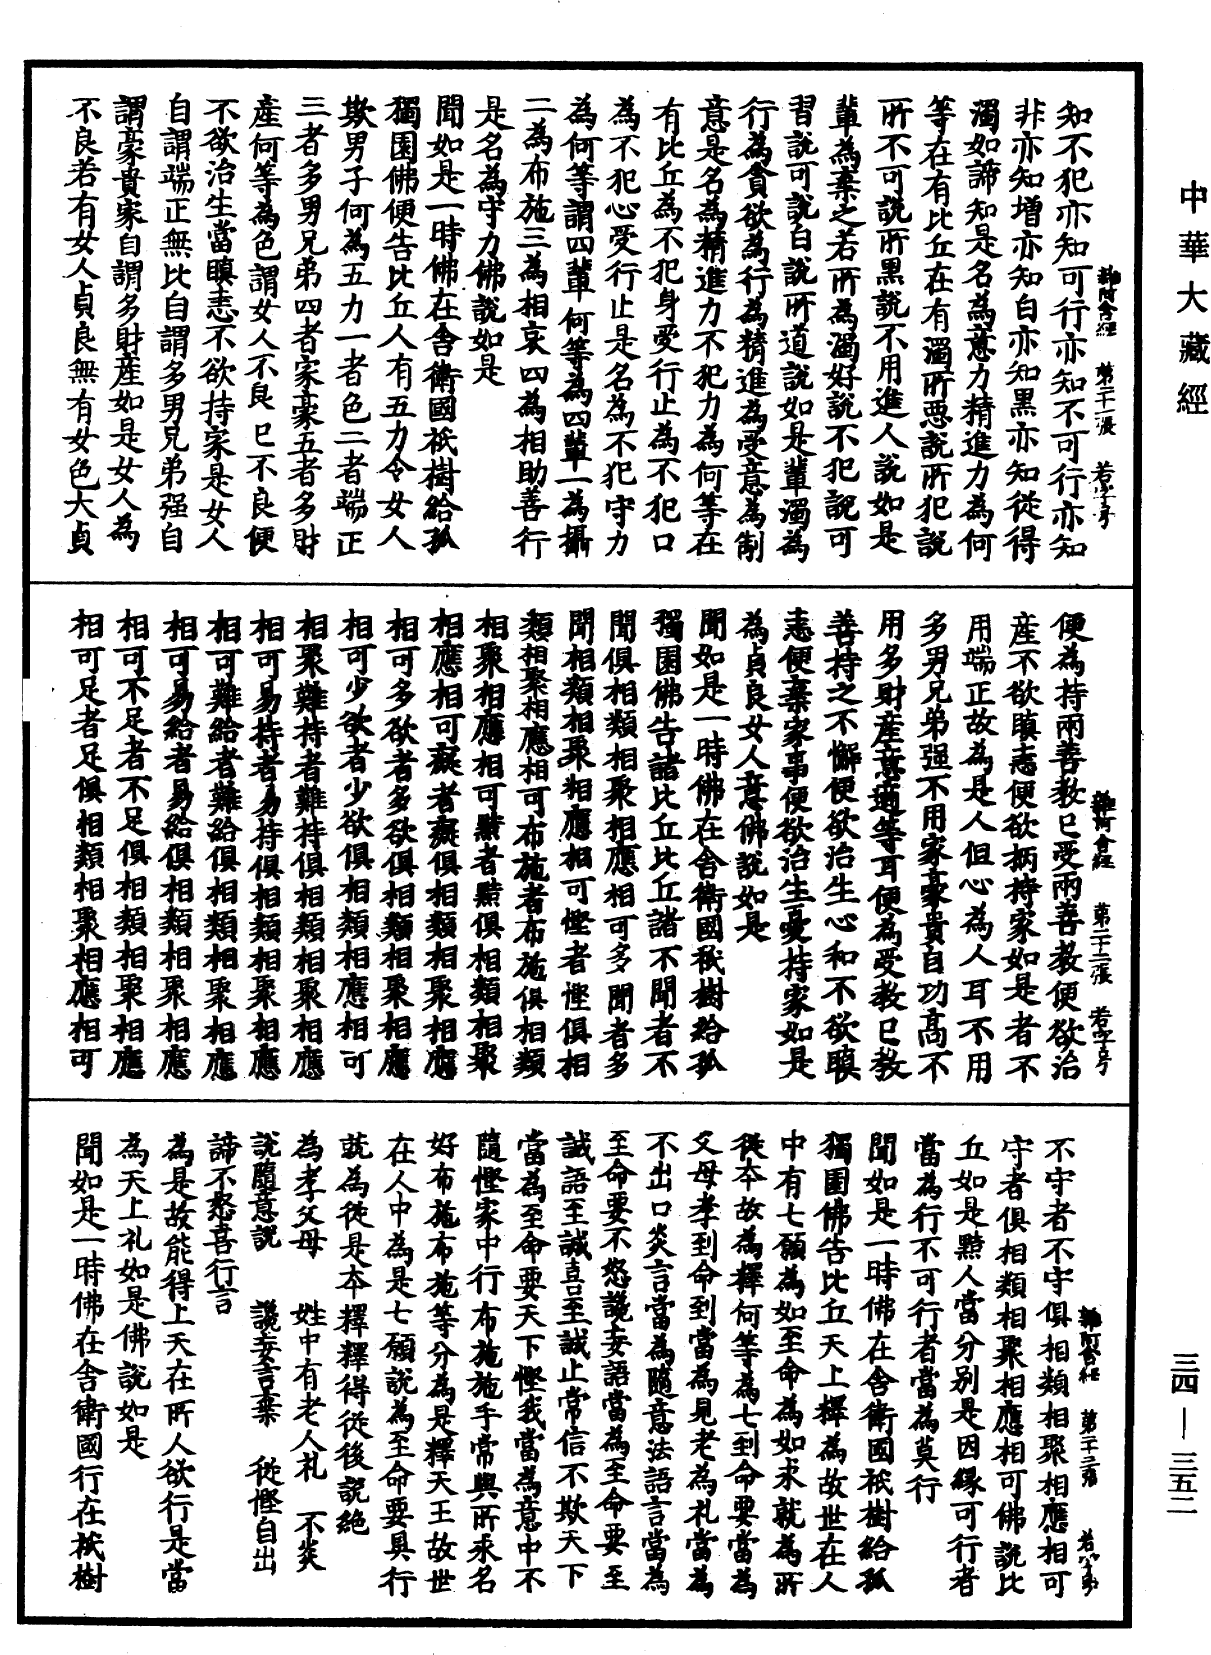 中華大藏經
知不犯亦知可行亦知不可行亦知
非亦知增亦知白亦知黑亦知從得
濁如諦知是名為意力精進力為何
等在有比丘在有濁所惡說所犯說
所不可說所黑說不用進人說如是
輩為棄之若所為濁好說不犯說可
習說可說白說所道說如是輩濁為
行為貪欲為行為精進為受意為制
意是名為精進力不犯力為何等在
有比丘為不犯身受行止為不犯口
為不犯心受行止是名為不犯守力
為何等謂四輩何等為四輩一為攝
二為布施三為相哀四為相助善行
是名為守力佛說如是
聞如是一時佛在舍衛國祇樹給孤
獨園佛便告比丘人有五力令女人
欺男子何為五力一者色二者端正
三者多男兄弟四者家豪五者多財
產何等為色謂女人不良已不良便
不欲治生當瞋恚不欲持家是女人
自謂端正無比自謂多男兄弟强自
謂豪貴家自謂多財產如是女人為
不良若有女人貞良無有女色大貞
雜阿含經　第二十一張　若字号
便為持兩善教已受兩善教便欲治
產不欲瞋恚便欲柄持家如是者不
用端正故為是人但心為人耳不用
多男兄弟强不用家豪貴自功高不
用多財產意適等耳便為受教已教
善持之不懈便欲治生心和不欲瞋
恚便棄家事便欲治生憂持家如是
為貞良女人意佛說如是
聞如是一時佛在舍衛國祇樹給孤
獨園佛告諸比丘比丘諸不聞者不
聞俱相類相聚相應相可多聞者多
聞相類相聚相應相可慳者慳俱相
類相聚相應相可布施者布施俱相類
相聚相應相可黠者黠俱相類相聚
相應相可癡者癡俱相類相聚相應
相可多欲者多欲俱相類相聚相應
相可少欲者少欲俱相類相應相可
相聚難持者難持俱相類相聚相應
相可易持者易持俱相類相聚相應
相可難給者難給俱相類相聚相應
相可易給者易給俱相類相聚相應
相可不足者不足俱相類相聚相應
相可足者足俱相類相聚相應相可
雜阿含經　第二十二張　若字号
不守者不守俱相類相聚相應相可
守者俱相類相聚相應相可佛說比
丘如是黠人當分別是因緣可行者
當為行不可行者當為莫行
聞如是一時佛在舍衛國祇樹給孤
獨園佛告比丘天上釋為故世在人
中有七願為如至命為如求就為所
從本故為釋何等為七到命要當為
父母孝到命到當為見老為礼當為
不出口炎言當為隨意法語言當為
至命要不怒讒妄語當為至命要至
誠語至誠喜至誠止常信不欺天下
當為至命要天下慳我當為意中不
隨慳家中行布施施手常與所求名
好布施布施等分為是釋天王故世
在人中為是七願說為至命要具行
就為從是本釋釋得從後說絶
為孝父母　姓中有老人礼　不炎
說隨意說　讒妄言棄　從慳自出
諦不怒喜行言
為是故能得上天在所人欲行是當
為天上礼如是佛說如是
聞如是一時佛在舍衛國行在祇樹
雜阿含經　第二十三張　若字号
三四—三五二